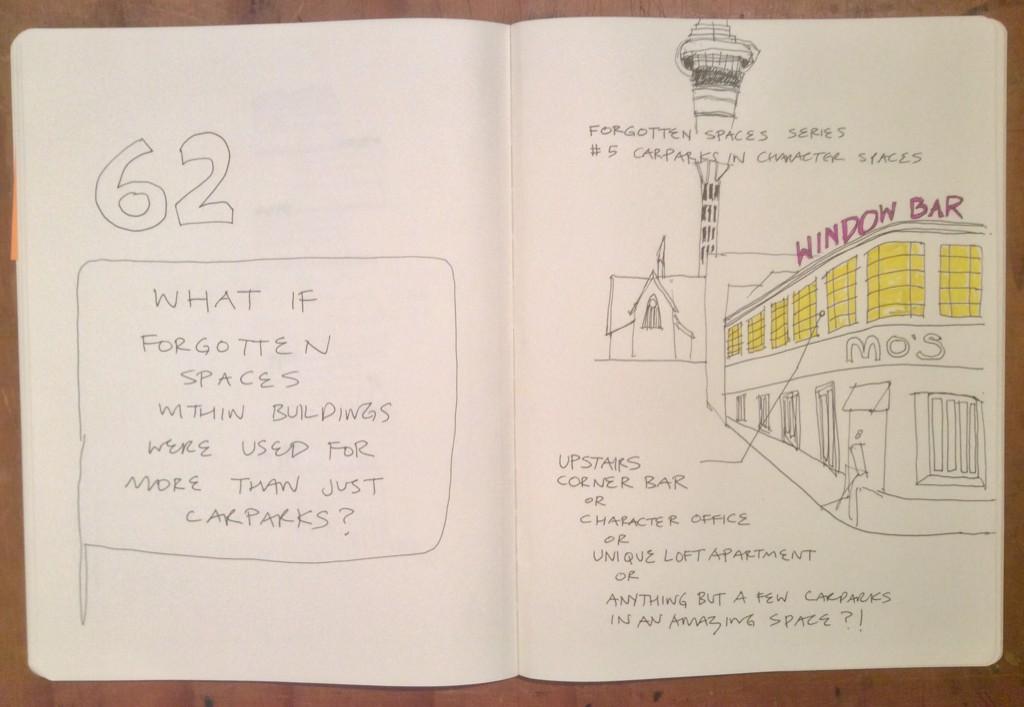 62
WHAT IF
FORGOTTEN
SPACES
WITHIN BUILDINGS
WERE USED FOR
MORE THAN JUST
CARPARKS?
FORGOTTEN SPACES SERIES
#5 CARPARKS IN CHARACTER SPACES
WINDOW BAR
MO'S
UPSTAIRS
CORNER BAR
OR
CHARACTER OFFICE
OR
UNIQUE LOFT APARTMENT
OR
ANYTHING BUT A FEW CARPARKS
IN AN AMAZING SPACE?!